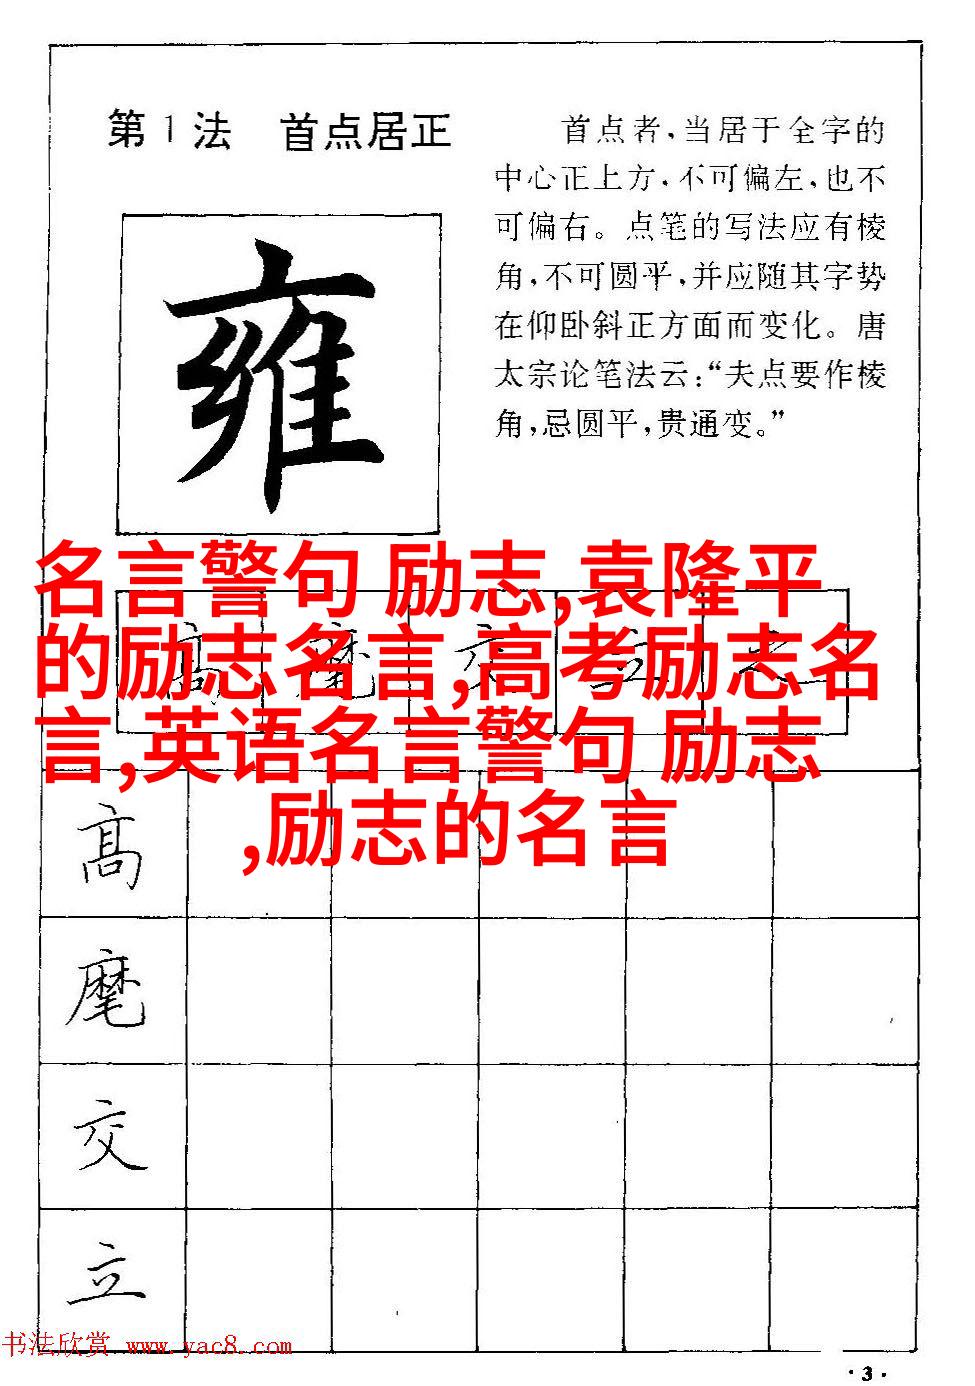 第1法 首点居正
首点者，当居于全字的
中心正上方，不可偏左，也不
可偏右。点笔的写法应有棱
角，不可圆平，并应随其字势
在仰卧斜正方面而变化。唐
太宗论笔法云：“夫点要作棱
角，忌圆平，贵通变。”
雍
名言警句 励志,袁隆平
的励志名言,高考励志名
言,英语名言警句 励志
,励志的名言
高 麾 交 立 之
高
麾
交
立
书法欣赏 www.yac8.com
·3·